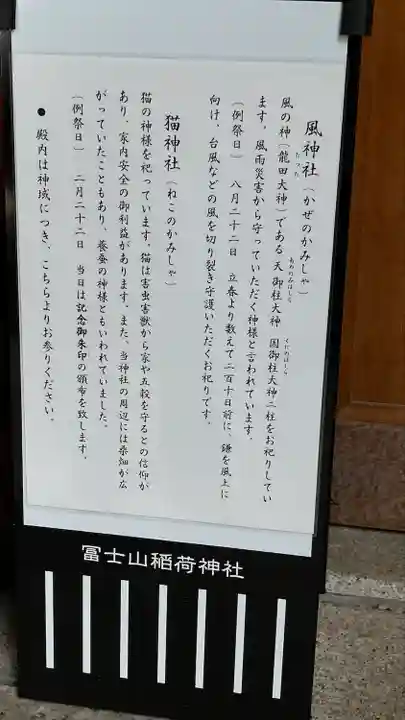 風神社（かぜのかみしゃ）
風の神（龍田大神）である 天御柱大神 国御柱大神二柱をお祀りしてい
たつた
あめのみはしら
くにのはしら
ます。風雨災害から守っていただく神様と言われています。
（例祭日） 八月二十二日 立春より数えて二百十日前に、鎌を風上に
向け、台風などの風を切り裂き守護いただくお祀りです。
猫神社（ねこのかみしゃ）
猫の神様を祀っています。猫は害虫害獣から家や五穀を守るとの信仰が
あり、家内安全の御利益があります。また、当神社の周辺には桑畑が広
がっていたこともあり、養蚕の神様ともいわれていました。
（例祭日） 二月二十二日 当日は記念御朱印の頒布を致します。
● 殿内は神域につき、こちらよりお参りください。
冨士山稲荷神社